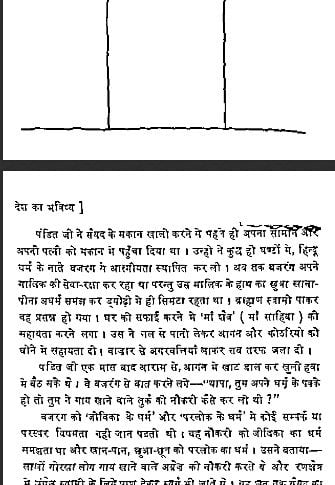 देश का भविष्य ]
पंडित जी ने सैयद के मकान खाली करने से पहले ही अपना सामान और
अपनी पत्नी को मकान में पहुँचा दिया था । उन्होंने कुछ ही घण्टों में, हिन्दू
धर्म के नाते बजरंग से आत्मीयता स्थापित कर ली । अब तक बजरंग अपने
मालिक की सेवा-रक्षा कर रहा था परन्तु उस मालिक के हाथ का छुआ खाना-
पीना अधर्म समझ कर ड्योढ़ी में ही सिमटा रहता था । ब्राह्मण स्वामी पाकर
वह प्रसन्न हो गया । घर की सफाई करने में 'माँ सा'ब' ( माँ साहिबा ) की
सहायता करने लगा । उस ने नल से पानी लेकर आंगन और कोठरियों को
धोने में सहायता दी । बाज़ार से अगरबत्तियाँ लाकर सब तरफ जला दी ।
पंडित जी एक मास बाद आराम से, आंगन में खाट डाल कर खुली हवा
में बैठ सके थे । वे बजरंग से बात करने लगे—"पाधा, तुम अपने धर्म के पक्के
हो तो तुम ने गाय खाने वाले तुर्क की नौकरी कैसे कर ली थी ?"
बजरंग को 'जीविका के धर्म' और 'परलोक के धर्म' में कोई सम्पर्क या
परस्पर विषमता नहीं जान पड़ती थी । वह नौकरी को जीविका का धर्म
समझता था और खान-पान, छुआ-छूत को परलोक का धर्म । उसने बताया—
लाखों गोरखा लोग गाय खाने वाले अंग्रेज की नौकरी करते थे और रणक्षेत्र